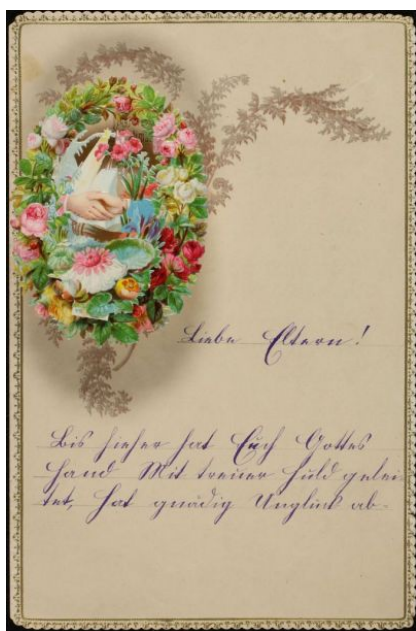 Liebe Eltern!
Bis hieher hat Euch Gottes
Hand Mit treuer Huld gelei-
tet, Hat gnädig Unglück ab-